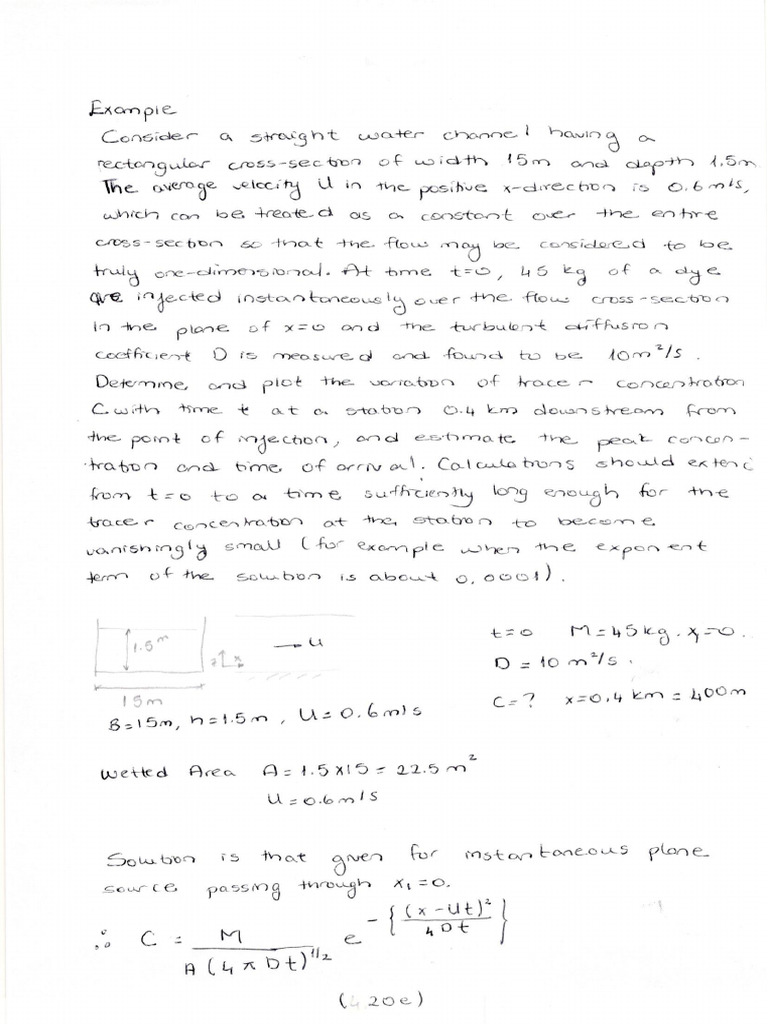 Example
Consider a straight water channel having a
rectangular cross-section of width 15m and depth 1.5m
The average velocity U in the positive x-direction is 0.6m/s,
which can be treated as a constant over the entire
cross-section so that the flow may be considered to be
truly one-dimensional. At time t=0, 45 kg of a dye
are injected instantaneously over the flow cross-section
in the plane of x=0 and the turbulent diffusion
coefficient D is measured and found to be 10m²/s.
Determine, and plot the variation of tracer concentration
C with time t at a station 0.4 km downstream from
the point of injection, and estimate the peak concen-
tration and time of arrival. Calculations should extend
from t=0 to a time sufficiently long enough for the
tracer concentration at the station to become
vanishingly small (for example when the exponent
term of the solution is about 0.0001).
1.5m
z x
→ U
t=0 M=45kg. x₁=0.
D = 10 m²/s.
15m
C=? x=0.4 km = 400m
B=15m, h=1.5m, U=0.6m/s
Wetted Area A=1.5x15=22.5 m²
U=0.6m/s
Solution is that given for instantaneous plane
source passing through x₁=0.
∴ C = M / A(4πDt)^1/2 e^-{(x-Ut)²/4Dt}
(4.20e)